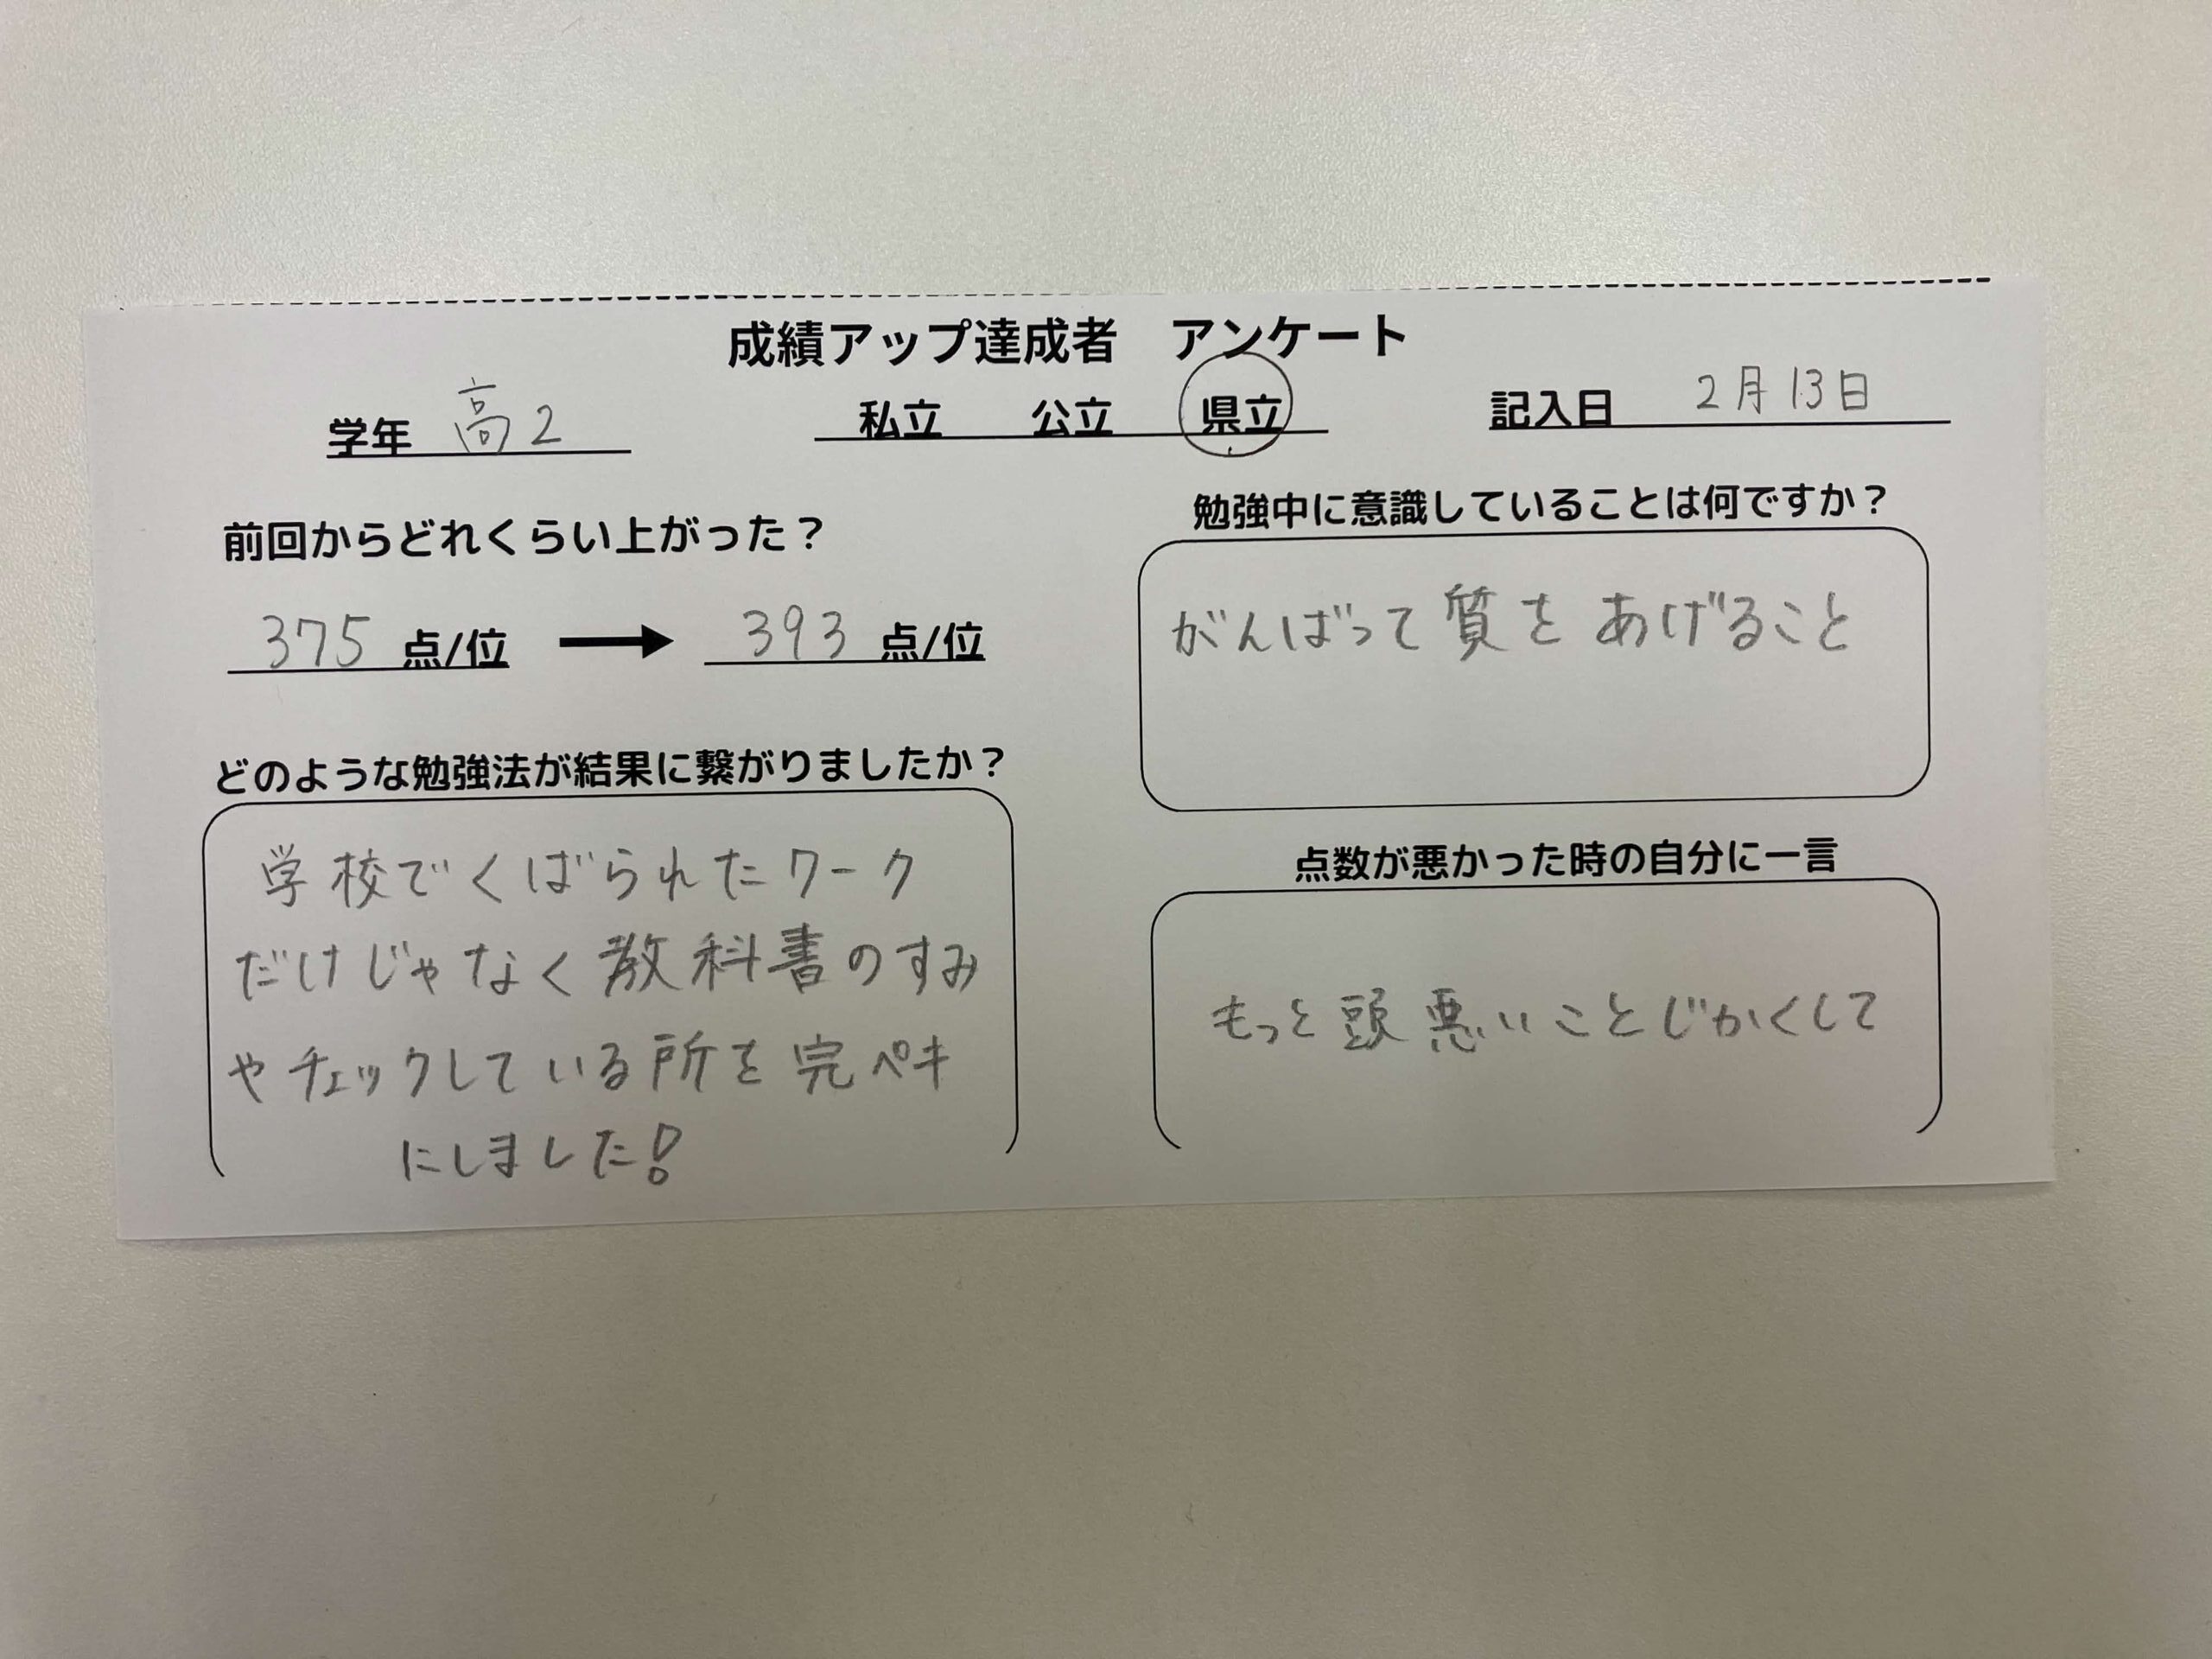 成績アップ達成者　アンケート
学年 高2
私立　公立　県立
記入日 2月13日
前回からどれくらい上がった？
375 点/位 → 393 点/位
どのような勉強法が結果に繋がりましたか？
学校でくばられたワーク
だけじゃなく教科書のすみ
やチェックしている所を完ペキ
にしました!
勉強中に意識していることは何ですか？
がんばって質をあげること
点数が悪かった時の自分に一言
もっと頭悪いことじかくして